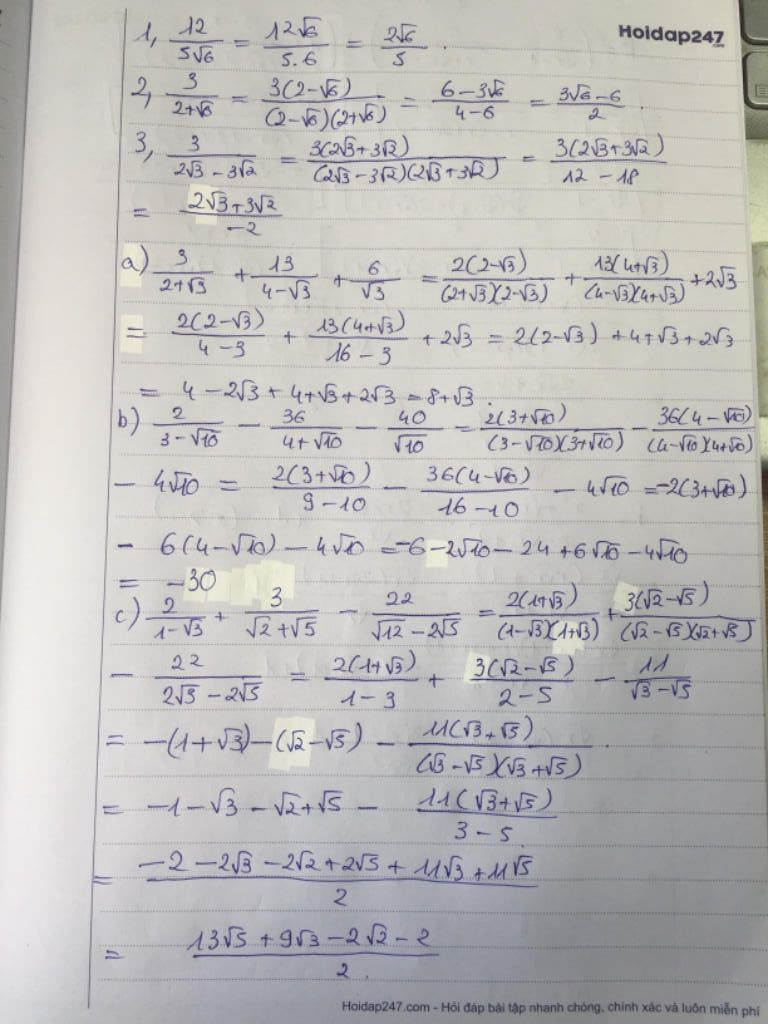 Hoidap247
.com
1, 12/5√6 = 12√6/5.6 = 2√6/5 .
2, 3/2+√6 = 3(2-√6)/(2-√6)(2+√6) = 6-3√6/4-6 = 3√6-6/2 .
3, 3/2√3-3√2 = 3(2√3+3√2)/(2√3-3√2)(2√3+3√2) = 3(2√3+3√2)/12-18
= 2√3+3√2/-2
a) 3/2+√3 + 13/4-√3 + 6/√3 = 2(2-√3)/(2+√3)(2-√3) + 13(4+√3)/(4-√3)(4+√3) + 2√3
= 2(2-√3)/4-3 + 13(4+√3)/16-3 + 2√3 = 2(2-√3) + 4+√3+2√3
= 4-2√3+4+√3+2√3 = 8+√3 .
b) 2/3-√10 - 36/4+√10 - 40/√10 = 2(3+√10)/(3-√10)(3+√10) - 36(4-√10)/(4-√10)(4+√10)
- 4√10 = 2(3+√10)/9-10 - 36(4-√10)/16-10 - 4√10 = -2(3+√10)
- 6(4-√10) - 4√10 = -6-2√10-24+6√10-4√10
= -30
c) 2/1-√3 + 3/√2+√5 - 22/√12-2√5 = 2(1+√3)/(1-√3)(1+√3) + 3(√2-√5)/(√2-√5)(√2+√5)
- 22/2√3-2√5 = 2(1+√3)/1-3 + 3(√2-√5)/2-5 - 11/√3-√5
= -(1+√3)-(√2-√5) - 11(√3+√5)/(√3-√5)(√3+√5) .
= -1-√3-√2+√5 - 11(√3+√5)/3-5
= -2-2√3-2√2+2√5+11√3+11√5/2
= 13√5+9√3-2√2-2/2 .
Hoidap247.com - Hỏi đáp bài tập nhanh chóng, chính xác và luôn miễn phí